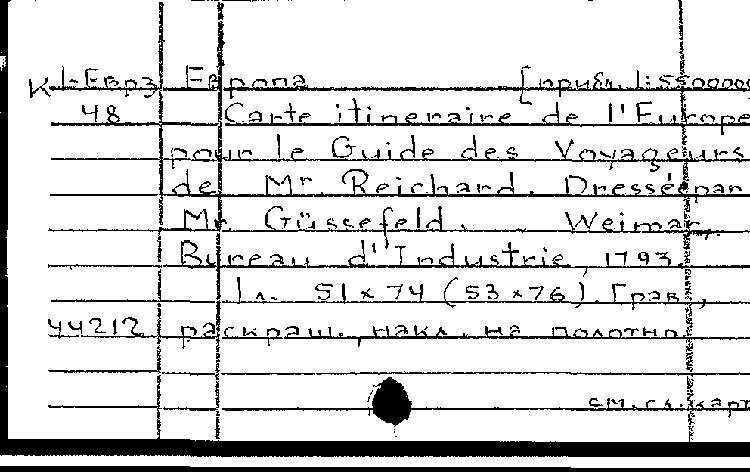 К 1-Евр3 Европа [прибл. 1:5500000
48 Carte itineraire de l'Europe
pour le Guide des Voyageurs
de Mr. Reichard. Dressée par
Mr Güssefeld. Weimar,
Bureau d'Industrie, 1793.
1 л. 51 x 74 (53 x 76). Грав.,
44212 раскраш., накл. на полотно.
см. сл. карт